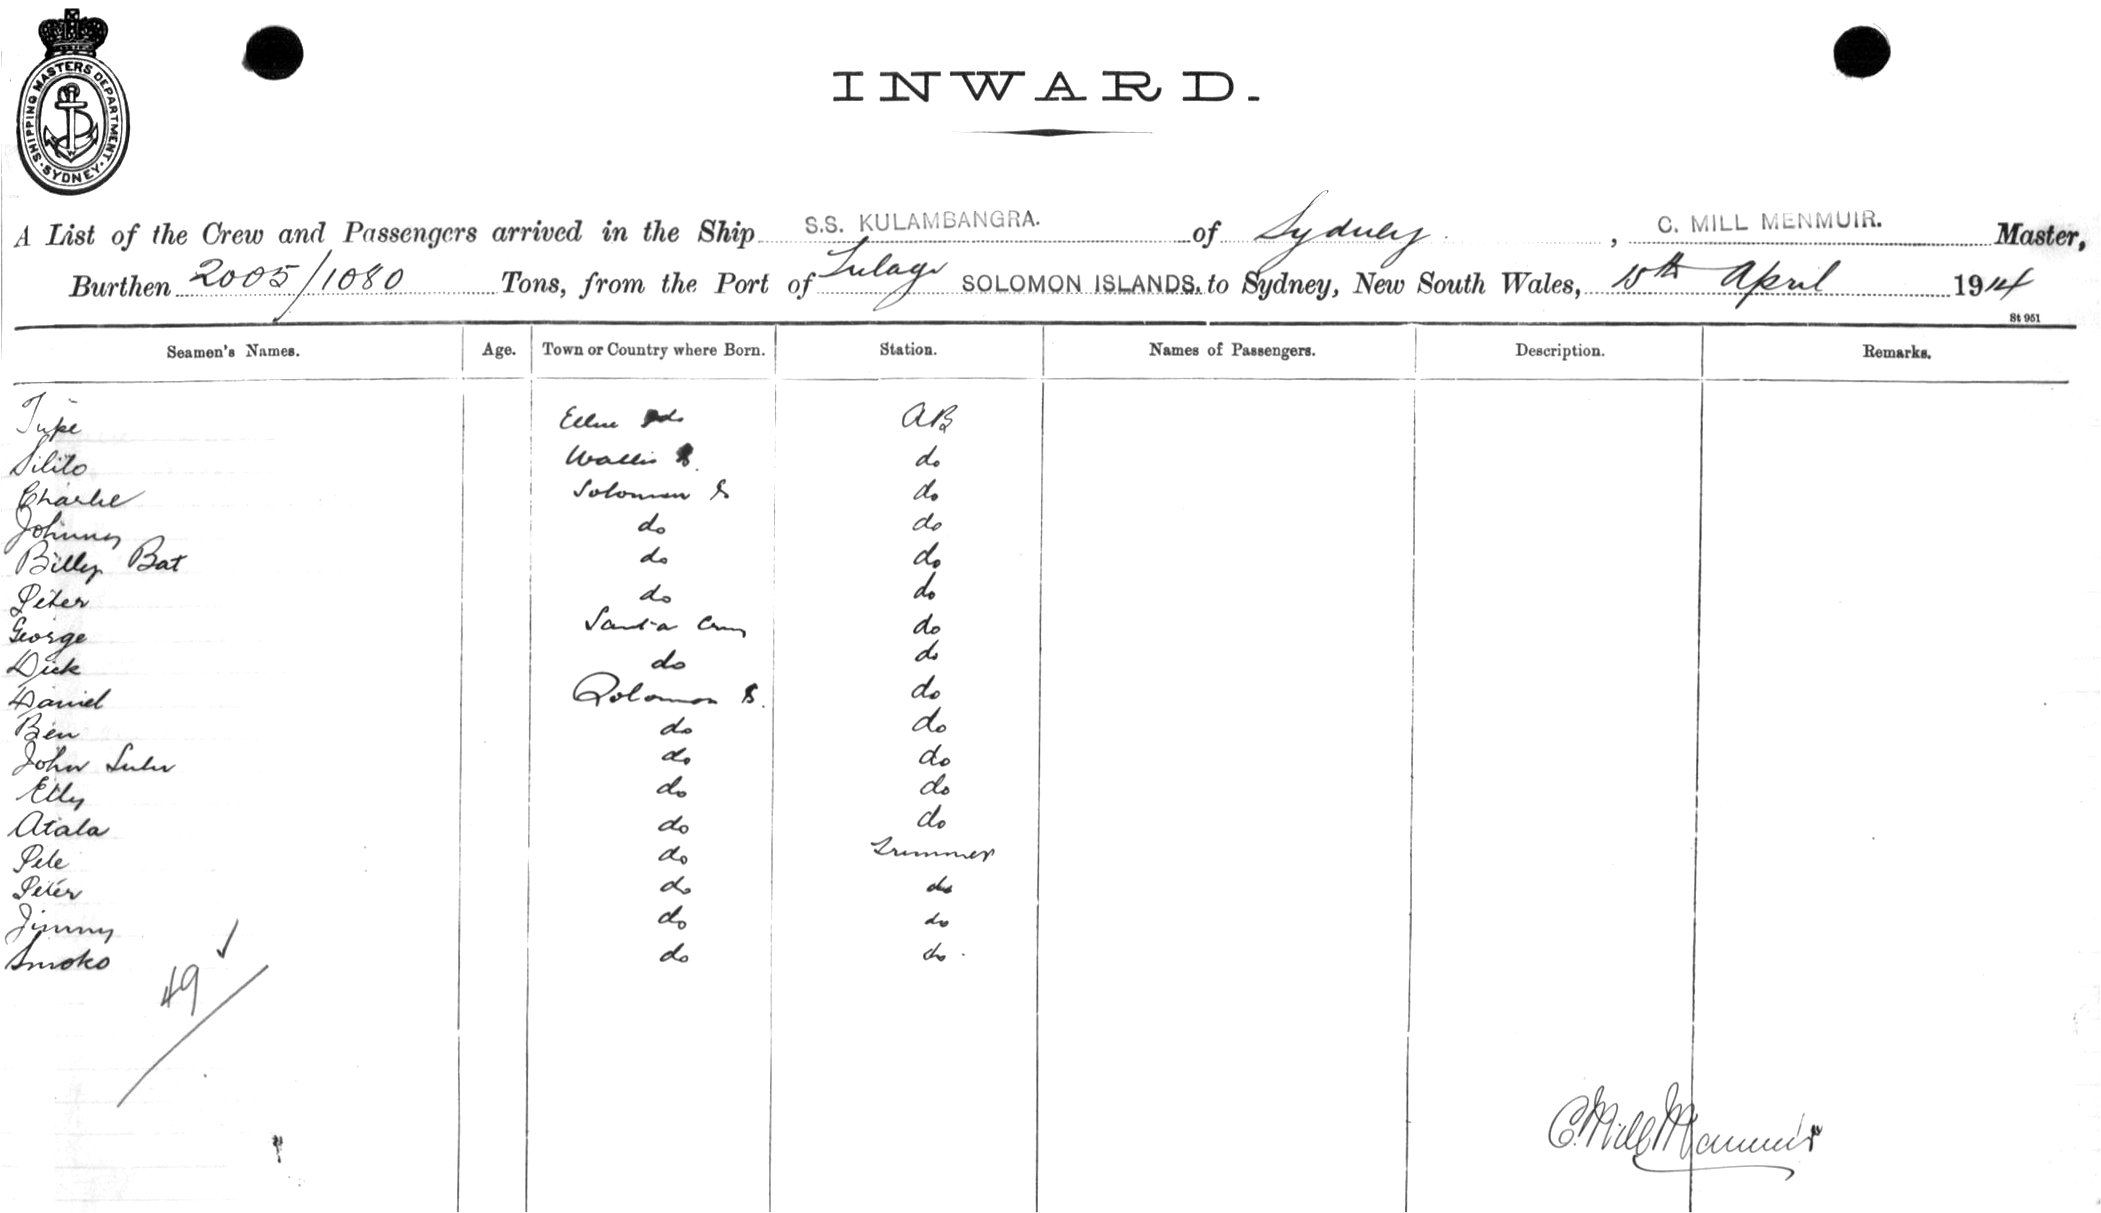 SHIPPING MASTERS DEPARTMENT · SYDNEY ·
INWARD.
A List of the Crew and Passengers arrived in the Ship S.S. KULAMBANGRA. of Sydney, C. MILL MENMUIR. Master,
Burthen 2005/1080 Tons, from the Port of Tulagi SOLOMON ISLANDS. to Sydney, New South Wales, April 1914
St 951
Seamen's Names. Age. Town or Country where Born. Station. Names of Passengers. Description. Remarks.
Tupe Ellice AB
Silito Wallis do
Charlie Solomon Is do
Johnny do do
Billy Bat do do
Peter do do
George Santa Cruz do
Dick do do
Daniel Solomon Is. do
Ben do do
John Sulu do do
Elly do do
Atala do do
Pele do Trimmer
Peter do do
Jimmy do do
Smoko do do
49
C. Mill Menmuir